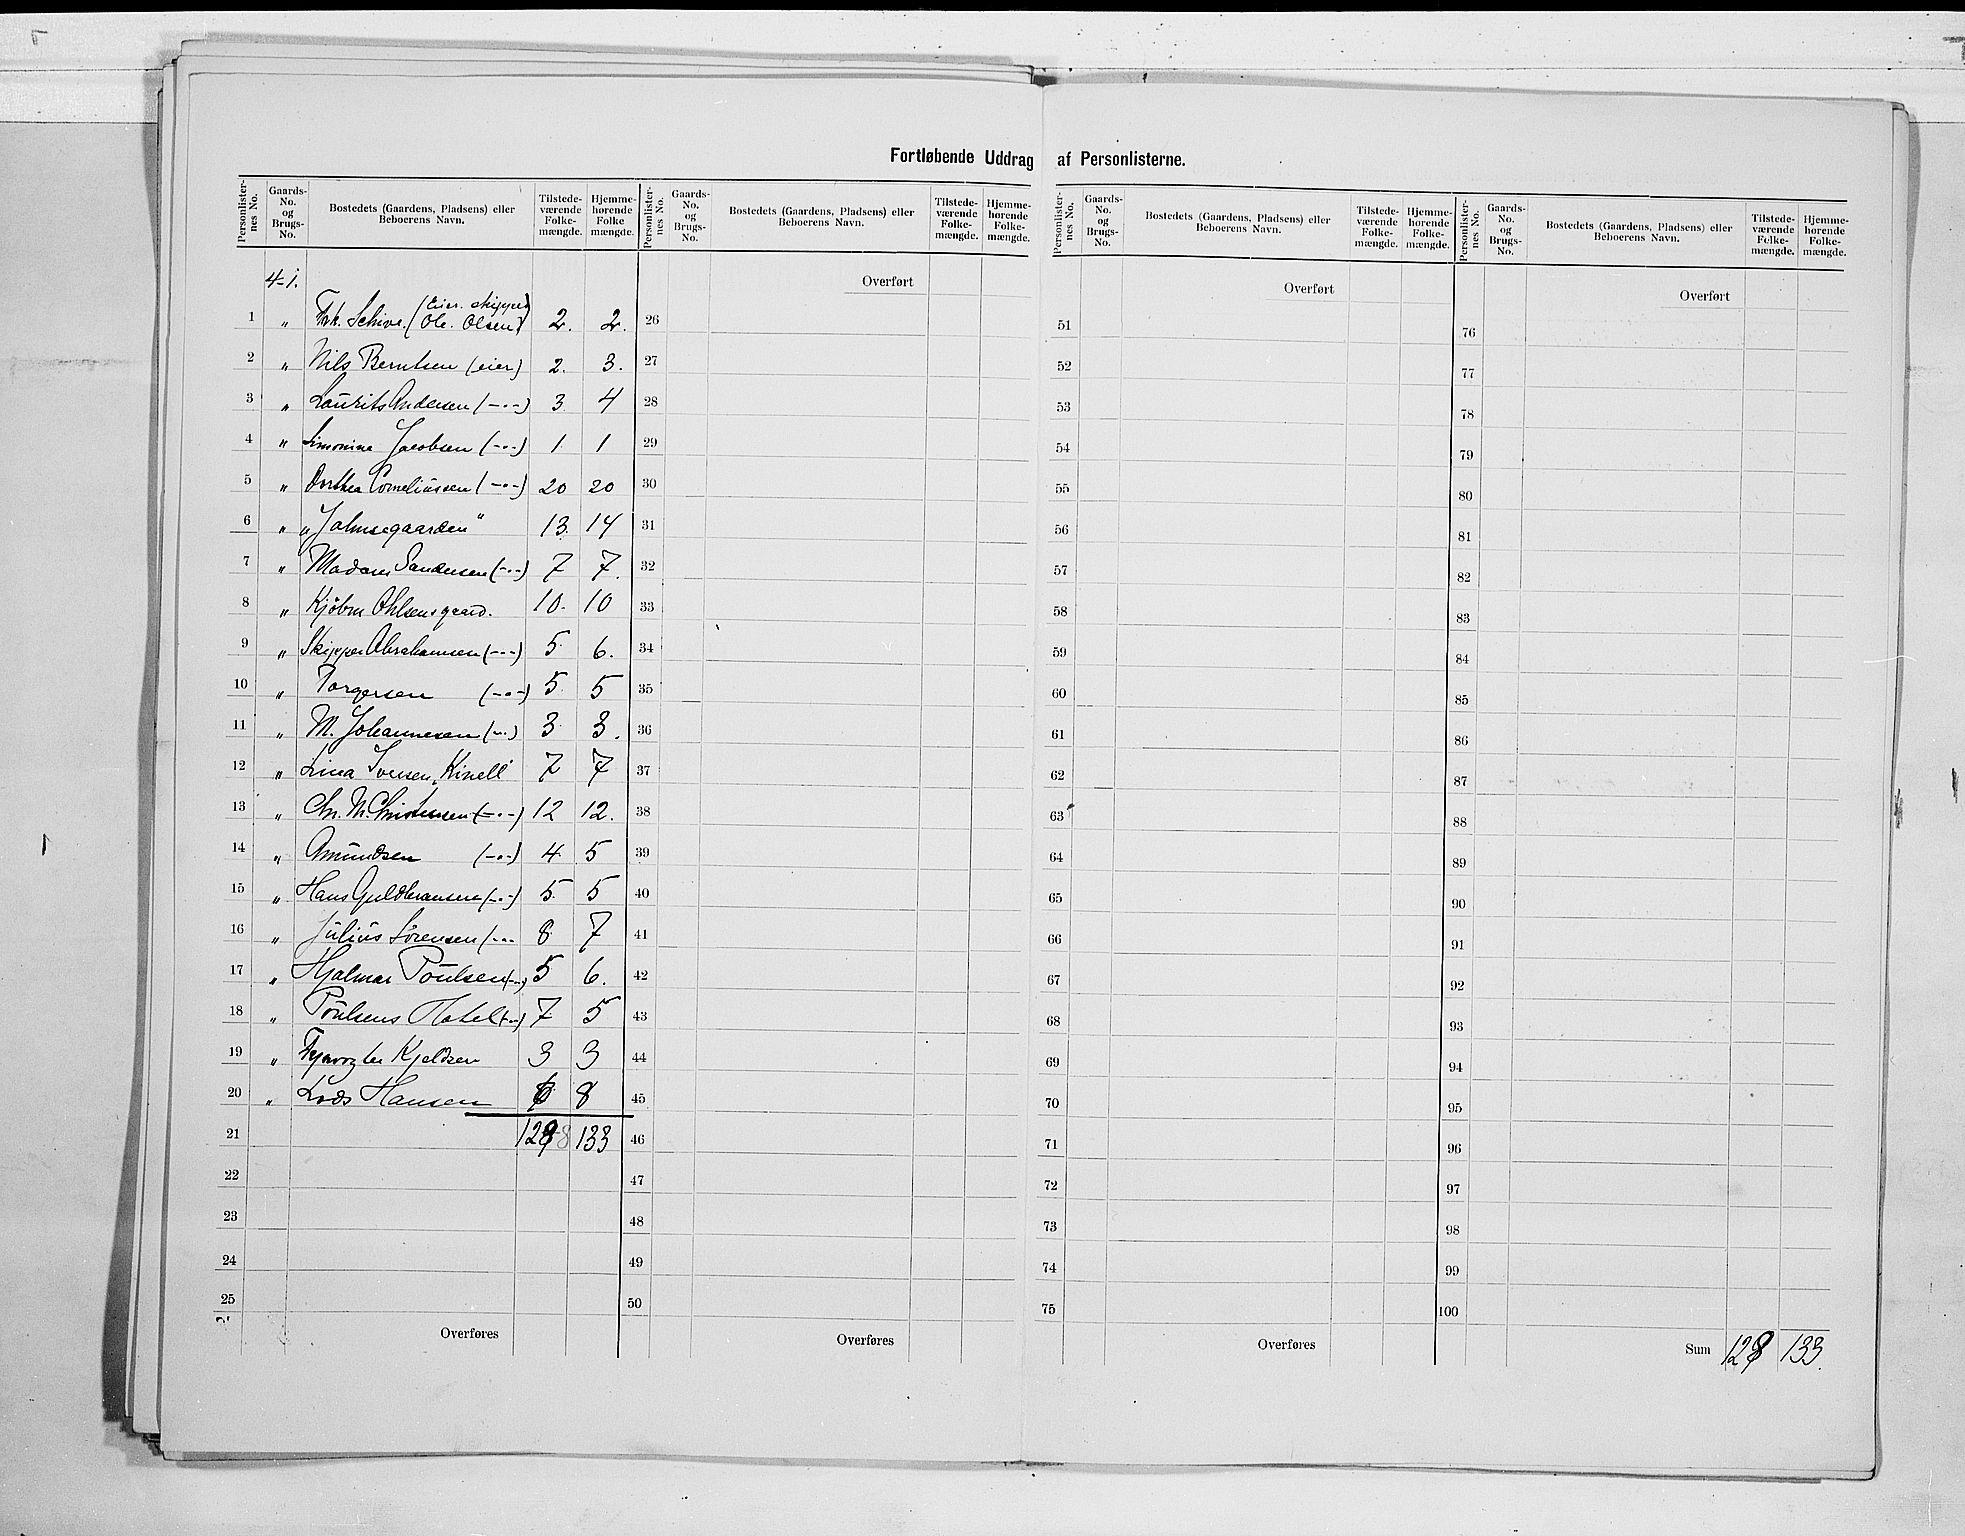 Fortløbende Uddrag af Personlisterne.
Personlister-nes No. Gaards-No. og Brugs-No. Bostedets (Gaardens, Pladsens) eller Beboerens Navn. Tilstede-værende Folke-mængde. Hjemme-hørende Folke mængde.
4-1.
(Eier. skipper
1 " Frk. Schive. (Ole. Olsen) 2. 2.
2 " Nils Berntsen (eier) 2. 3.
3 " Laurits Andersen (-"-) 3 4
4 " Simonine Jacobsen (-"-) 1. 1
5 " Dorthea Corneliussen (-"-) 20 20
6 " "Jahnsegaarden" 13. 14
7 " Madam Sandersen (-"-) 7 7.
8 " Kjøbm Ohlsensgaard. 10. 10
9 " Skipper Abrahamsen (-"-) 5 6.
10 " Torgersen (-"-) 5. 5
11 " M. Johannesen (-"-) 3 3.
12 " Lina Iversen, Kinell 7 7
13 " Chr. M. Christensen (-"-) 12 12.
14 " Amundsen (-"-) 4 5
15 " Hans Guldbransen (-"-) 5. 5
16 " Julius Sørensen (-"- 8 7
17 " Hjalmar Poulsen (-"-) 5 6.
18 " Poulsens Hotel (-"-) 7 5
19 " Fyrvogter Kjeldsen 3 3
20 " Lods Hansen 6 8
21 128 133
22
23
24
25
Overføres
Personlister-nes No. Gaards-No. og Brugs-No. Bostedets (Gaardens, Pladsens) eller Beboerens Navn. Tilstede-værende Folke-mængde. Hjemme-hørende Folke-mængde.
Overført
26
27
28
29
30
31
32
33
34
35
36
37
38
39
40
41
42
43
44
45
46
47
48
49
50
Overføres
Personlister-nes No. Gaards-No. og Brugs-No. Bostedets (Gaardens, Pladsens) eller Beboerens Navn. Tilstede-værende Folke-mængde. Hjemme-hørende Folke-mængde.
Overført
51
52
53
54
55
56
57
58
59
60
61
62
63
64
65
66
67
68
69
70
71
72
73
74
75
Overføres
Personlister-nes No. Gaards-No. og Brugs-No. Bostedets (Gaardens, Pladsens) eller Beboerens Navn. Tilstede-værende Folke-mængde. Hjemme-hørende Folke-mængde.
Overført
76
77
78
79
80
81
82
83
84
85
86
87
88
89
90
91
92
93
94
95
96
97
98
99
100
Sum 128 133.